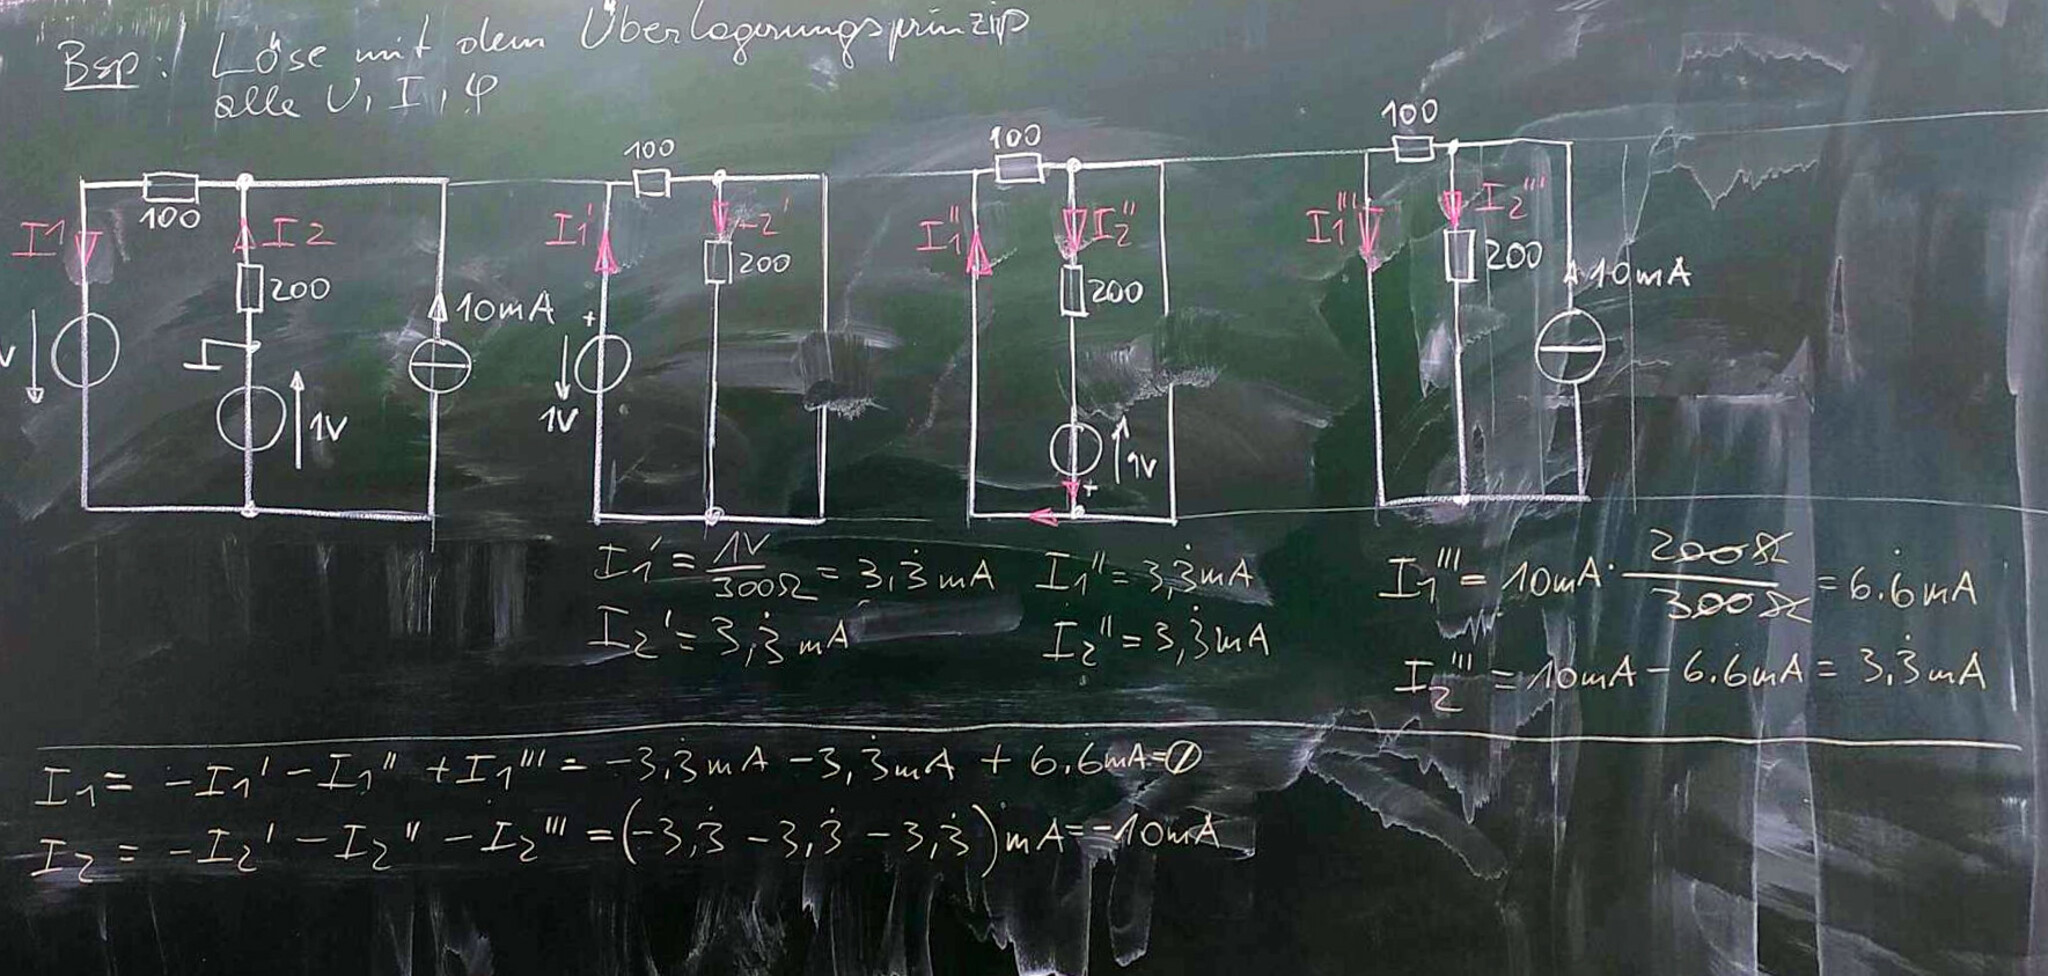 Bsp: Löse mit dem Überlagerungsprinzip
alle U, I, φ
100
I1
I2
200
10mA
V
1V
100
I1'
2'
200
+
1V
100
I1''
I2''
200
1V
+
100
I1'''
I2'''
200
10mA
I1' = 1V/300Ω = 3,3̇mA
I2' = 3,3̇mA
I1'' = 3,3̇mA
I2'' = 3,3̇mA
I1''' = 10mA · 200Ω/300Ω = 6.6̇mA
I2''' = 10mA - 6.6̇mA = 3,3̇mA
I1 = -I1' - I1'' + I1''' = -3,3̇mA - 3,3̇mA + 6.6̇mA = 0
I2 = -I2' - I2'' - I2''' = (-3,3̇ - 3,3̇ - 3,3̇)mA = -10mA